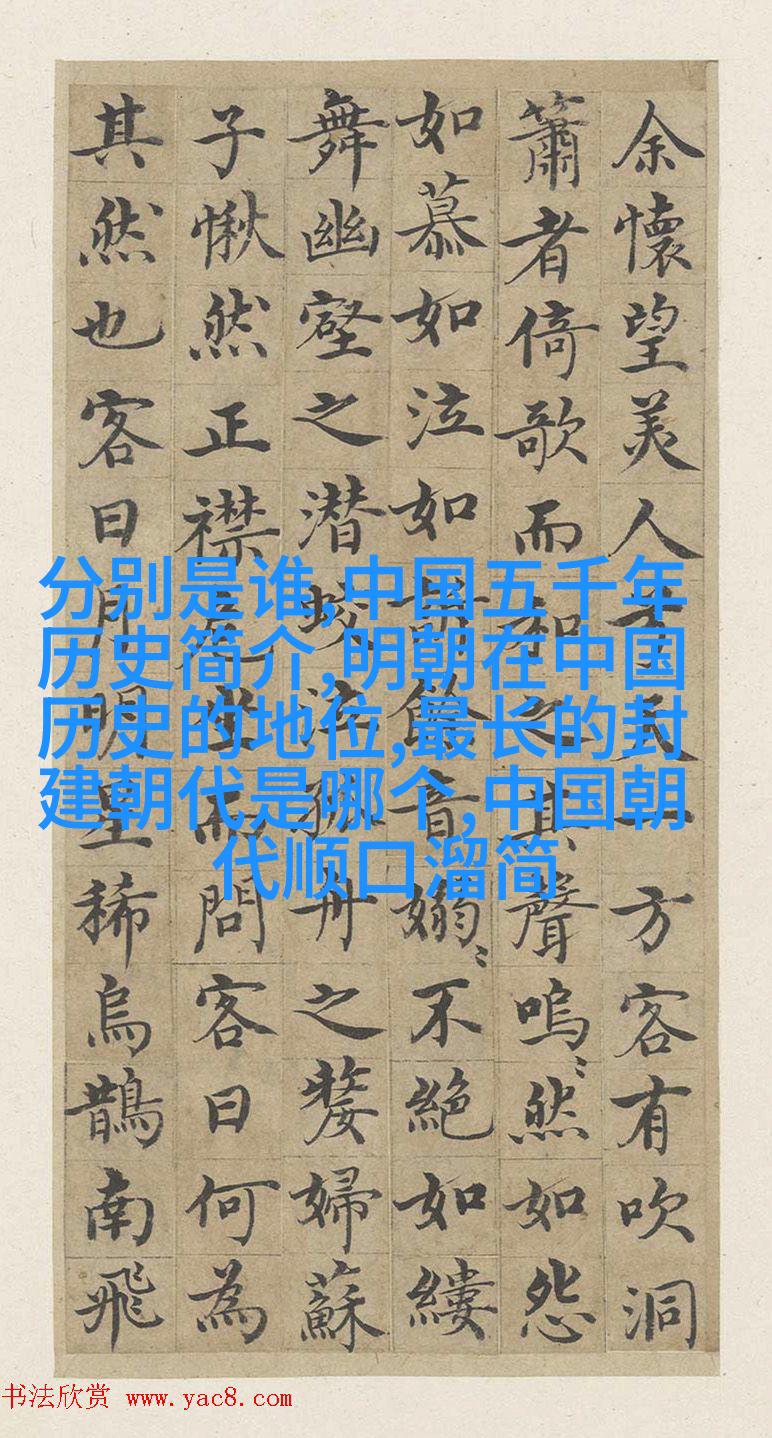 余懷望美人天一方客有吹洞
簫者倚歌而和之其聲嗚〻然如怨
如慕如泣如訴餘音嫋〻不絕如縷
舞幽壑之潜蛟泣孤舟之嫠婦蘇
子愀然正襟危坐而問客曰何為
其然也客曰月明星稀烏鵲南飛
分别是谁,中国五千年
历史简介,明朝在中国
历史的地位,最长的封
建朝代是哪个,中国朝
代顺口溜简
书法欣赏 www.yac8.com